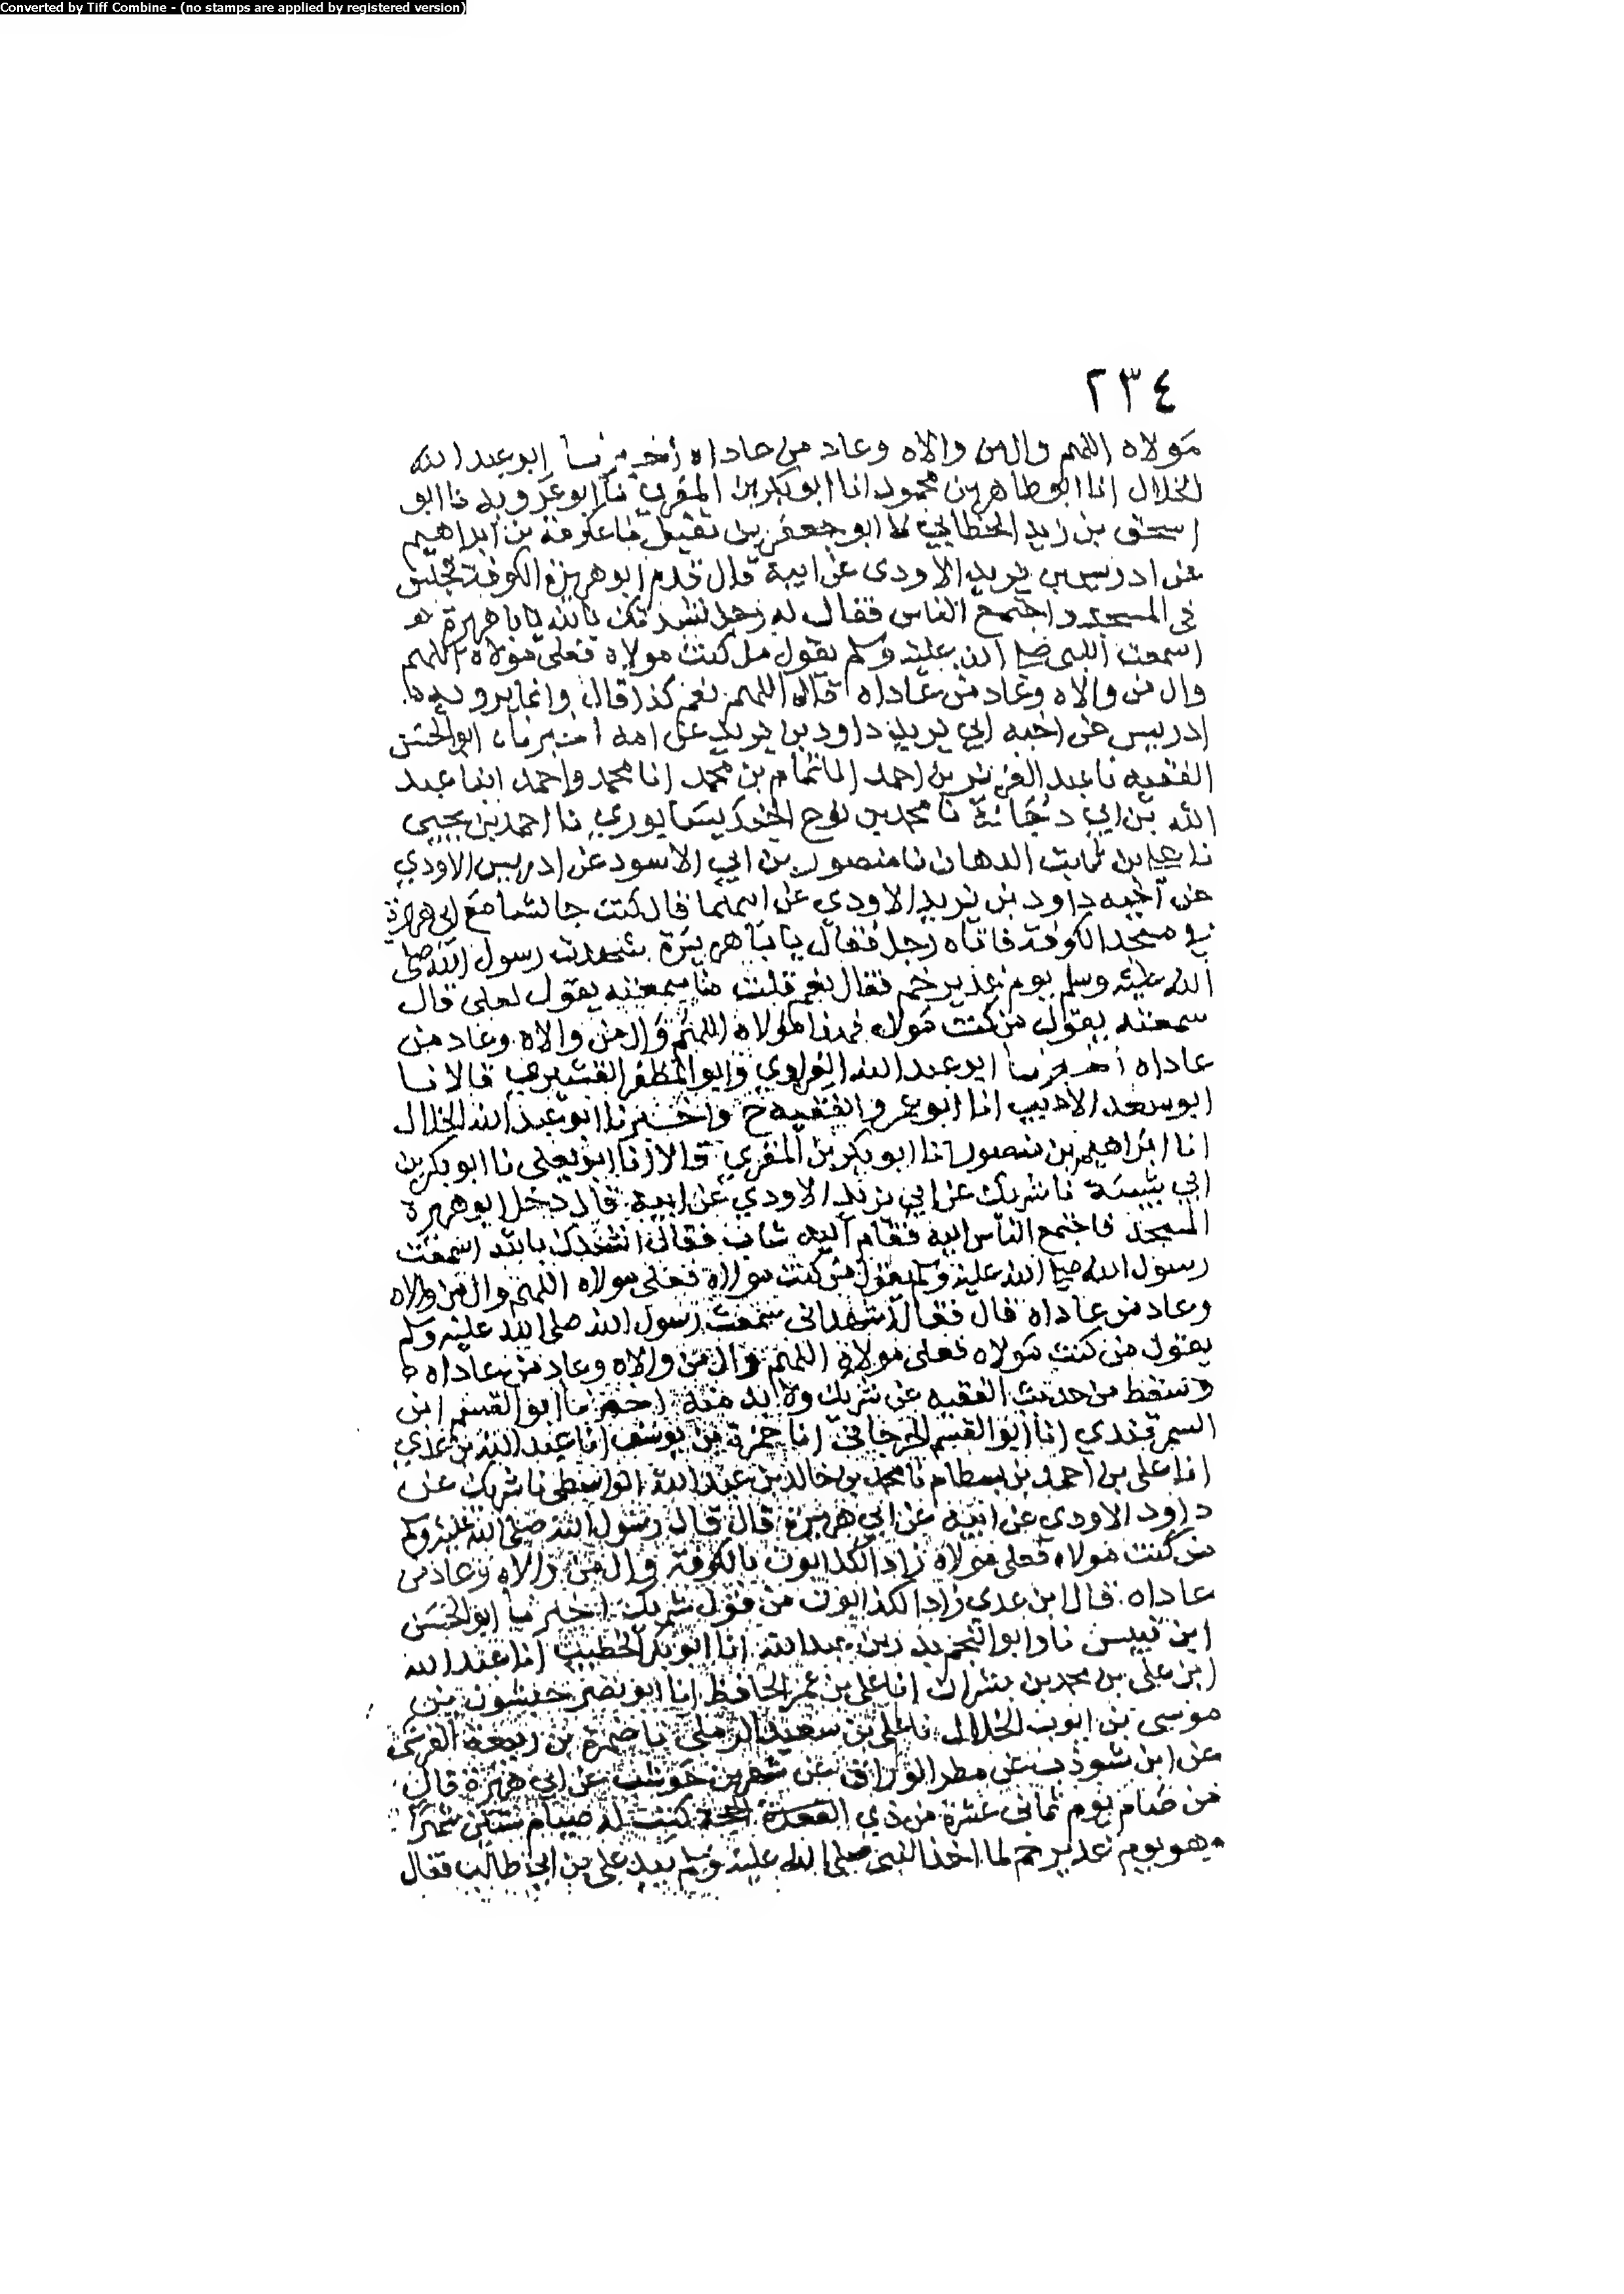 Converted by Tiff Combine - (no stamps are applied by registered version)
٢٣٤
مولاه اللهم وال من والاه وعاد من عاداه أخبرنا ابو عبد الله
الخلال انا ابو طاهر بن محمود انا ابو بكر بن المقري نا ابو عروبه نا ابو
اسحق بن زيد الخطابي نا ابو جعفر بن نفيل نا عكرمة بن ابراهيم
عن ادريس بن يزيد الاودى عن ابيه قال قدم ابو هريرة الكوفة فجلس
في المسجد واجتمع الناس فقال له رجل نشدتك بالله يابا هريرة هو
اسمعت النبى صلى الله عليه وسلم يقول من كنت مولاه فعلى مولاه اللهم
وال من والاه وعاد من عاداه قال اللهم نعم كذا قال وانما يرويه
ادريس عن اخيه ابي يزيد داود بن يزيد عن ابيه اخبرناه ابو الحسن
الفقيه نا عبد العزيز بن احمد انا تمام بن محمد انا محمد واحمد ابنا عبد
الله بن ابي دجانة نا محمد بن نوح الجنديسابوري نا احمد بن يحيى
نا على بن ثابت الدهان نا منصور بن ابي الاسود عن ادريس الاودي
عن اخيه داود بن يزيد الاودي عن ابيهما قال كنت جالسا مع ابي هريرة
في مسجد الكوفة فاتاه رجل فقال يابا هريرة شهدت رسول الله صلى
الله عليه وسلم يوم غدير خم فقال نعم قلت ما سمعته يقول لعلى قال
سمعته يقول من كنت مولاه فهذا مولاه اللهم وال من والاه وعاد من
عاداه أخبرنا ابو عبد الله الفراوي وابو المظفر القشيري قالا نا
ابو سعد الاديب انا ابو عمرو الفقيه ح واخبرنا ابو عبد الله الخلال
انا ابراهيم بن منصور انا ابو بكر بن المقري قالا انا ابو يعلى نا ابو بكر بن
ابي شيبة نا شريك عن ابي يزيد الاودي عن ابيه قال دخل ابو هريرة
المسجد فاجتمع الناس اليه فقام اليه شاب فقال انشدك بالله اسمعت
رسول الله صلى الله عليه وسلم يقول من كنت مولاه فعلى مولاه اللهم وال من والاه
وعاد من عاداه قال فقال اشهد انى سمعت رسول الله صلى الله عليه وسلم
يقول من كنت مولاه فعلى مولاه اللهم وال من والاه وعاد من عاداه
وسقط من حديث الفقيه عن شريك ولا بد منه اخبرنا ابو القسم ابن
السمرقندي انا ابو القسم الجرجانى انا حمزة بن يوسف انا عبد الله بن عدي
انا على بن احمد بن بسطام نا محمد بن خالد بن عبد الله الواسطى نا شريك عن
داود الاودي عن ابيه عن ابي هريرة قال قال رسول الله صلى الله عليه وسلم
من كنت مولاه فعلى مولاه زاد الكذابون بالكوفة وال من والاه وعاد من
عاداه قال ابن عدي زاد الكذابون من قول شريك اخبرنا ابو الحسن
ابن قبيس نا وابو النجم بدر بن عبد الله انا ابو بكر الخطيب انا عبد الله
ابن على بن محمد بن بشران انا على بن عمر الحافظ انا ابو نصر حبشون بن
موسى بن ايوب الخلال نا على بن سعيد الرملى نا ضمرة بن ربيعة القرشى
عن ابن شوذب عن مطر الوراق عن شهر بن حوشب عن ابي هريرة قال
من صام يوم ثمانى عشرة من ذي القعدة الحجة كتب له صيام ستين شهرا
وهو يوم غدير خم لما اخذ النبى صلى الله عليه وسلم بيد على بن ابي طالب فقال